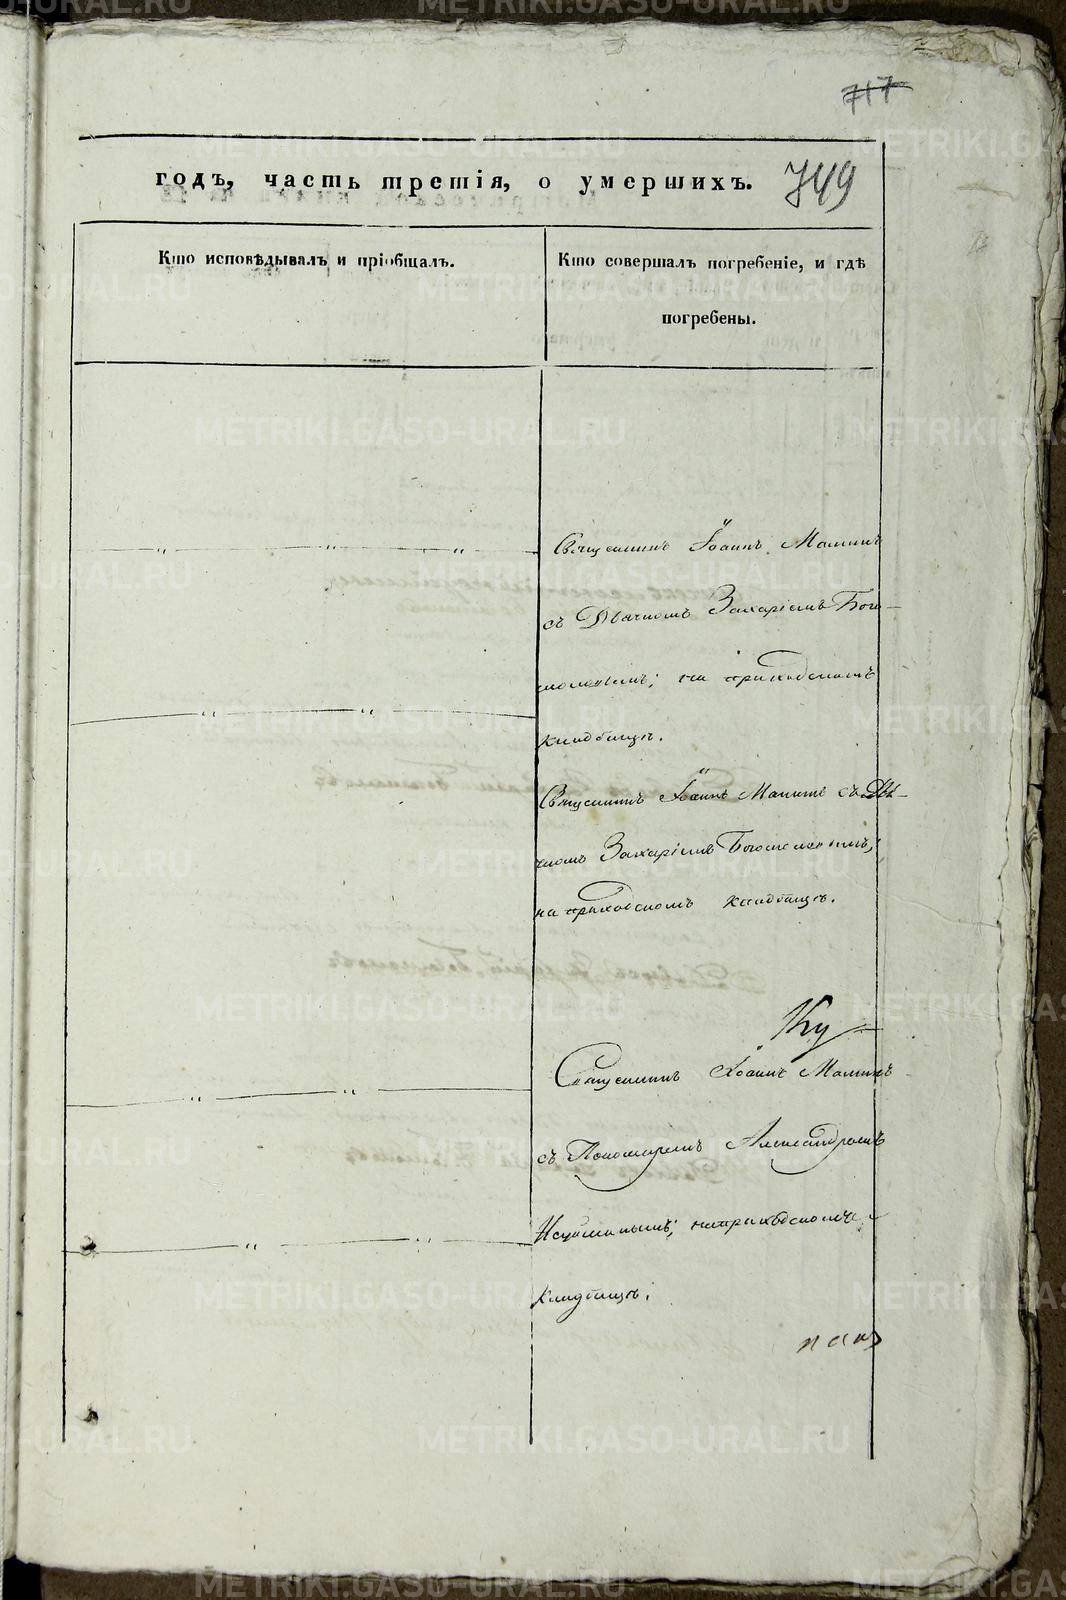 717
годъ, часть третія, о умершихъ. 749
Кто исповѣдывалъ и пріобщалъ.
Кто совершалъ погребеніе, и гдѣ
погребены.
Священникъ Іоаннъ Маминъ
съ Дьячкомъ Захаріемъ Бого-
моловымъ; на приходскомъ
кладбищѣ.
Священникъ Іоаннъ Маминъ съ Дья-
чкомъ Захаріемъ Богомоловымъ,
на приходскомъ кладбищѣ.
Священникъ Іоаннъ Маминъ
съ Пономаремъ Александромъ
на приходскомъ
кладбищѣ;
METRIKI.GASO-URAL.RU